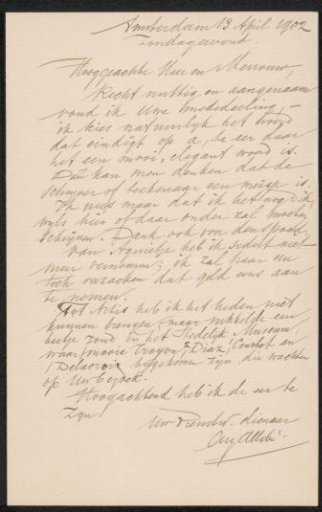 Amsterdam 13 April 1902
Zondagavond.
Hooggeachte Heer en Mevrouw,
Recht nuttig en aangenaam
vond ik Uwe mededeeling,-
ik kies natuurlijk het woord
dat eindigt op a, te eer daar
het een mooi, elegant woord is.
Dan kan men denken dat de
schrijver of teekenaar een meisje is.
Ik weet maar dat ik het nog dik-
wijls hier of daar onder zal moeten
schrijven. Dank ook voor den
Van heb ik sedert niet
meer vernomen; ik zal haar nu
toch dat geld eens aan
te nemen.
Tot Artis heb ik het heden niet
kunnen brengen, maar wel een
beetje rond in het Stedelijk Museum,
waar mooie Troyon, Diaz, Courbet en
Delacroix bijgekomen zijn, die wachten
op Uw bezoek.
Hoogachtend heb ik de eer te
zijn
Uw Dienstw. dienaar
Aug Allebé